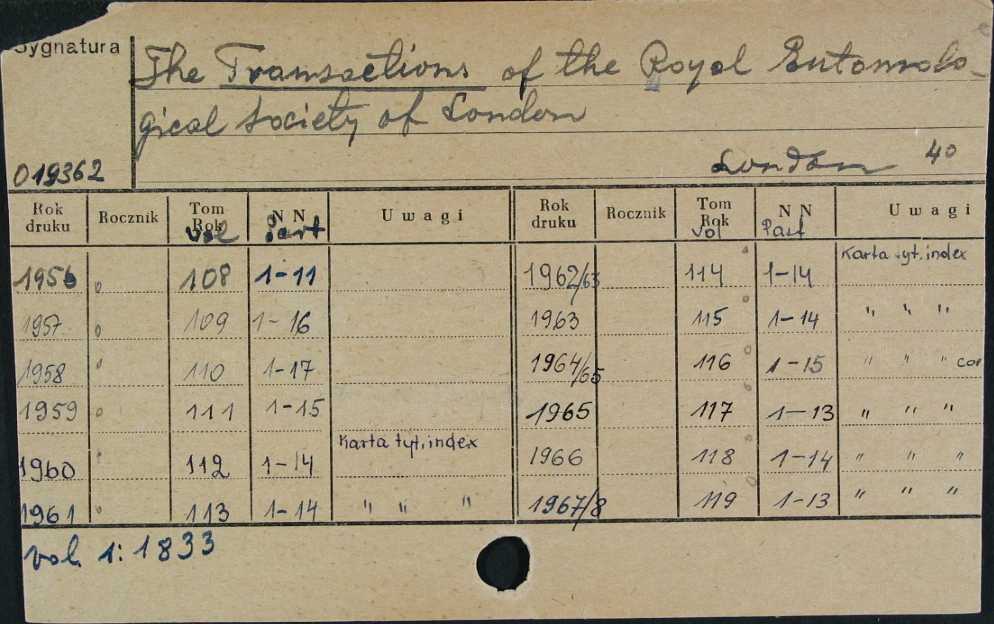 Sygnatura
The Transactions of the Royal Entomolo-
gical Society of London
London 40
019362
Rok druku Rocznik Tom Rok Vol N N Part Uwagi Rok druku Rocznik Tom Rok Vol N N Part Uwagi
1956 108 1-11 1962/63 114 1-14 Karta tyt. index
1957 109 1-16 1963 115 1-14 " " "
1958 110 1-17 1964/65 116 1-15 " " " cor
1959 111 1-15 1965 117 1-13 " " "
1960 112 1-14 Karta tyt. index 1966 118 1-14 " " "
1961 113 1-14 " " " 1967/8 119 1-13 " " "
vol. 1: 1833